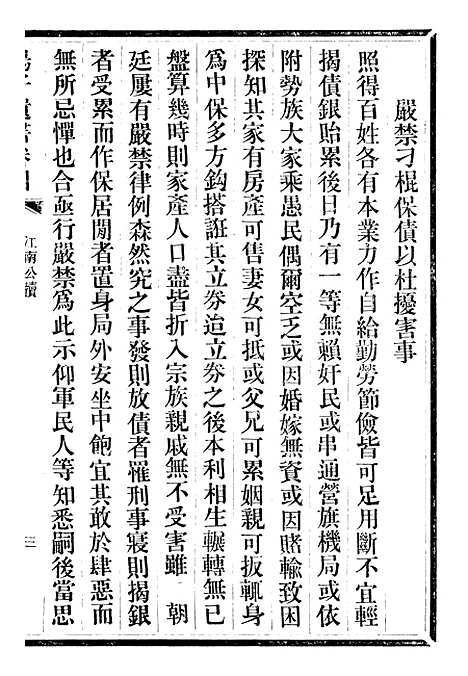 嚴禁刁棍保債以杜擾害事
照得百姓各有本業力作自給勤勞節儉皆可足用斷不宜輕
揭債銀貽累後日乃有一等無賴奸民或串通營旗機局或依
附勢族大家乘愚民偶爾空乏或因婚嫁無資或因賭輸致困
探知其家有房產可售妻女可抵或父兄可累姻親可扳輒身
爲中保多方鈎搭誆其立劵迨立劵之後本利相生輾轉無已
盤算幾時則家產人口盡皆折入宗族親戚無不受害雖 朝
廷屢有嚴禁律例森然究之事發則放債者罹刑事寢則揭銀
者受累而作保居閒者置身局外安坐中飽宜其敢於肆惡而
無所忌憚也合亟行嚴禁爲此示仰軍民人等知悉嗣後當思
江南公牘